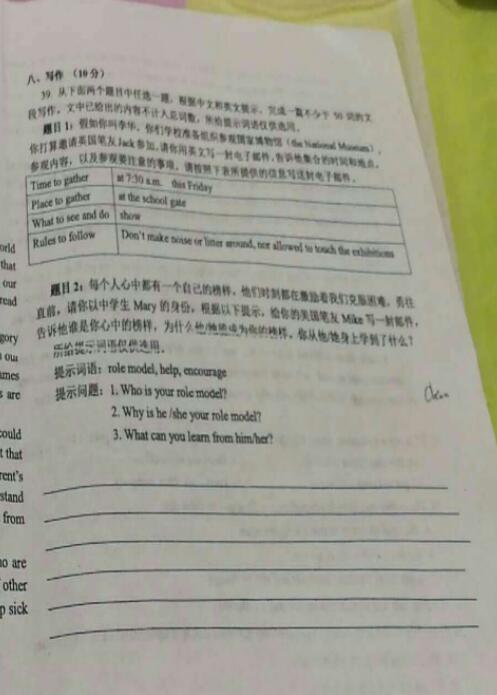 八、写作 （10分）
39. 从下面两个题目中任选一题，根据中文和英文提示，完成一篇不少于 50 词的文
段写作。文中已给出的内容不计入总词数。所给提示词语仅供选用。
题目 1：假如你叫李华，你们学校准备组织参观国家博物馆（the National Museum），
你打算邀请英国笔友 Jack 参加。请你用英文写一封电子邮件，告诉他集合的时间和地点，
参观内容，以及参观要注意的事项。请按照下表所提供的信息写这封电子邮件。
Time to gather at 7:30 a.m. this Friday
Place to gather at the school gate
What to see and do show
Rules to follow Don't make noise or litter around, not allowed to touch the exhibitions
题目 2：每个人心中都有一个自己的榜样，他们时刻都在激励着我们克服困难，勇往
直前，请你以中学生 Mary 的身份，根据以下提示，给你的美国笔友 Mike 写一封邮件，
告诉他谁是你心中的榜样，为什么他/她能成为你的榜样，你从他/她身上学到了什么？
所给提示词语仅供选用。
提示词语：role model, help, encourage
提示问题：1. Who is your role model?
2. Why is he /she your role model?
3. What can you learn from him/her?
orld
that
our
read
gory
ou
mes
are
could
t that
rent's
stand
from
no are
other
p sick